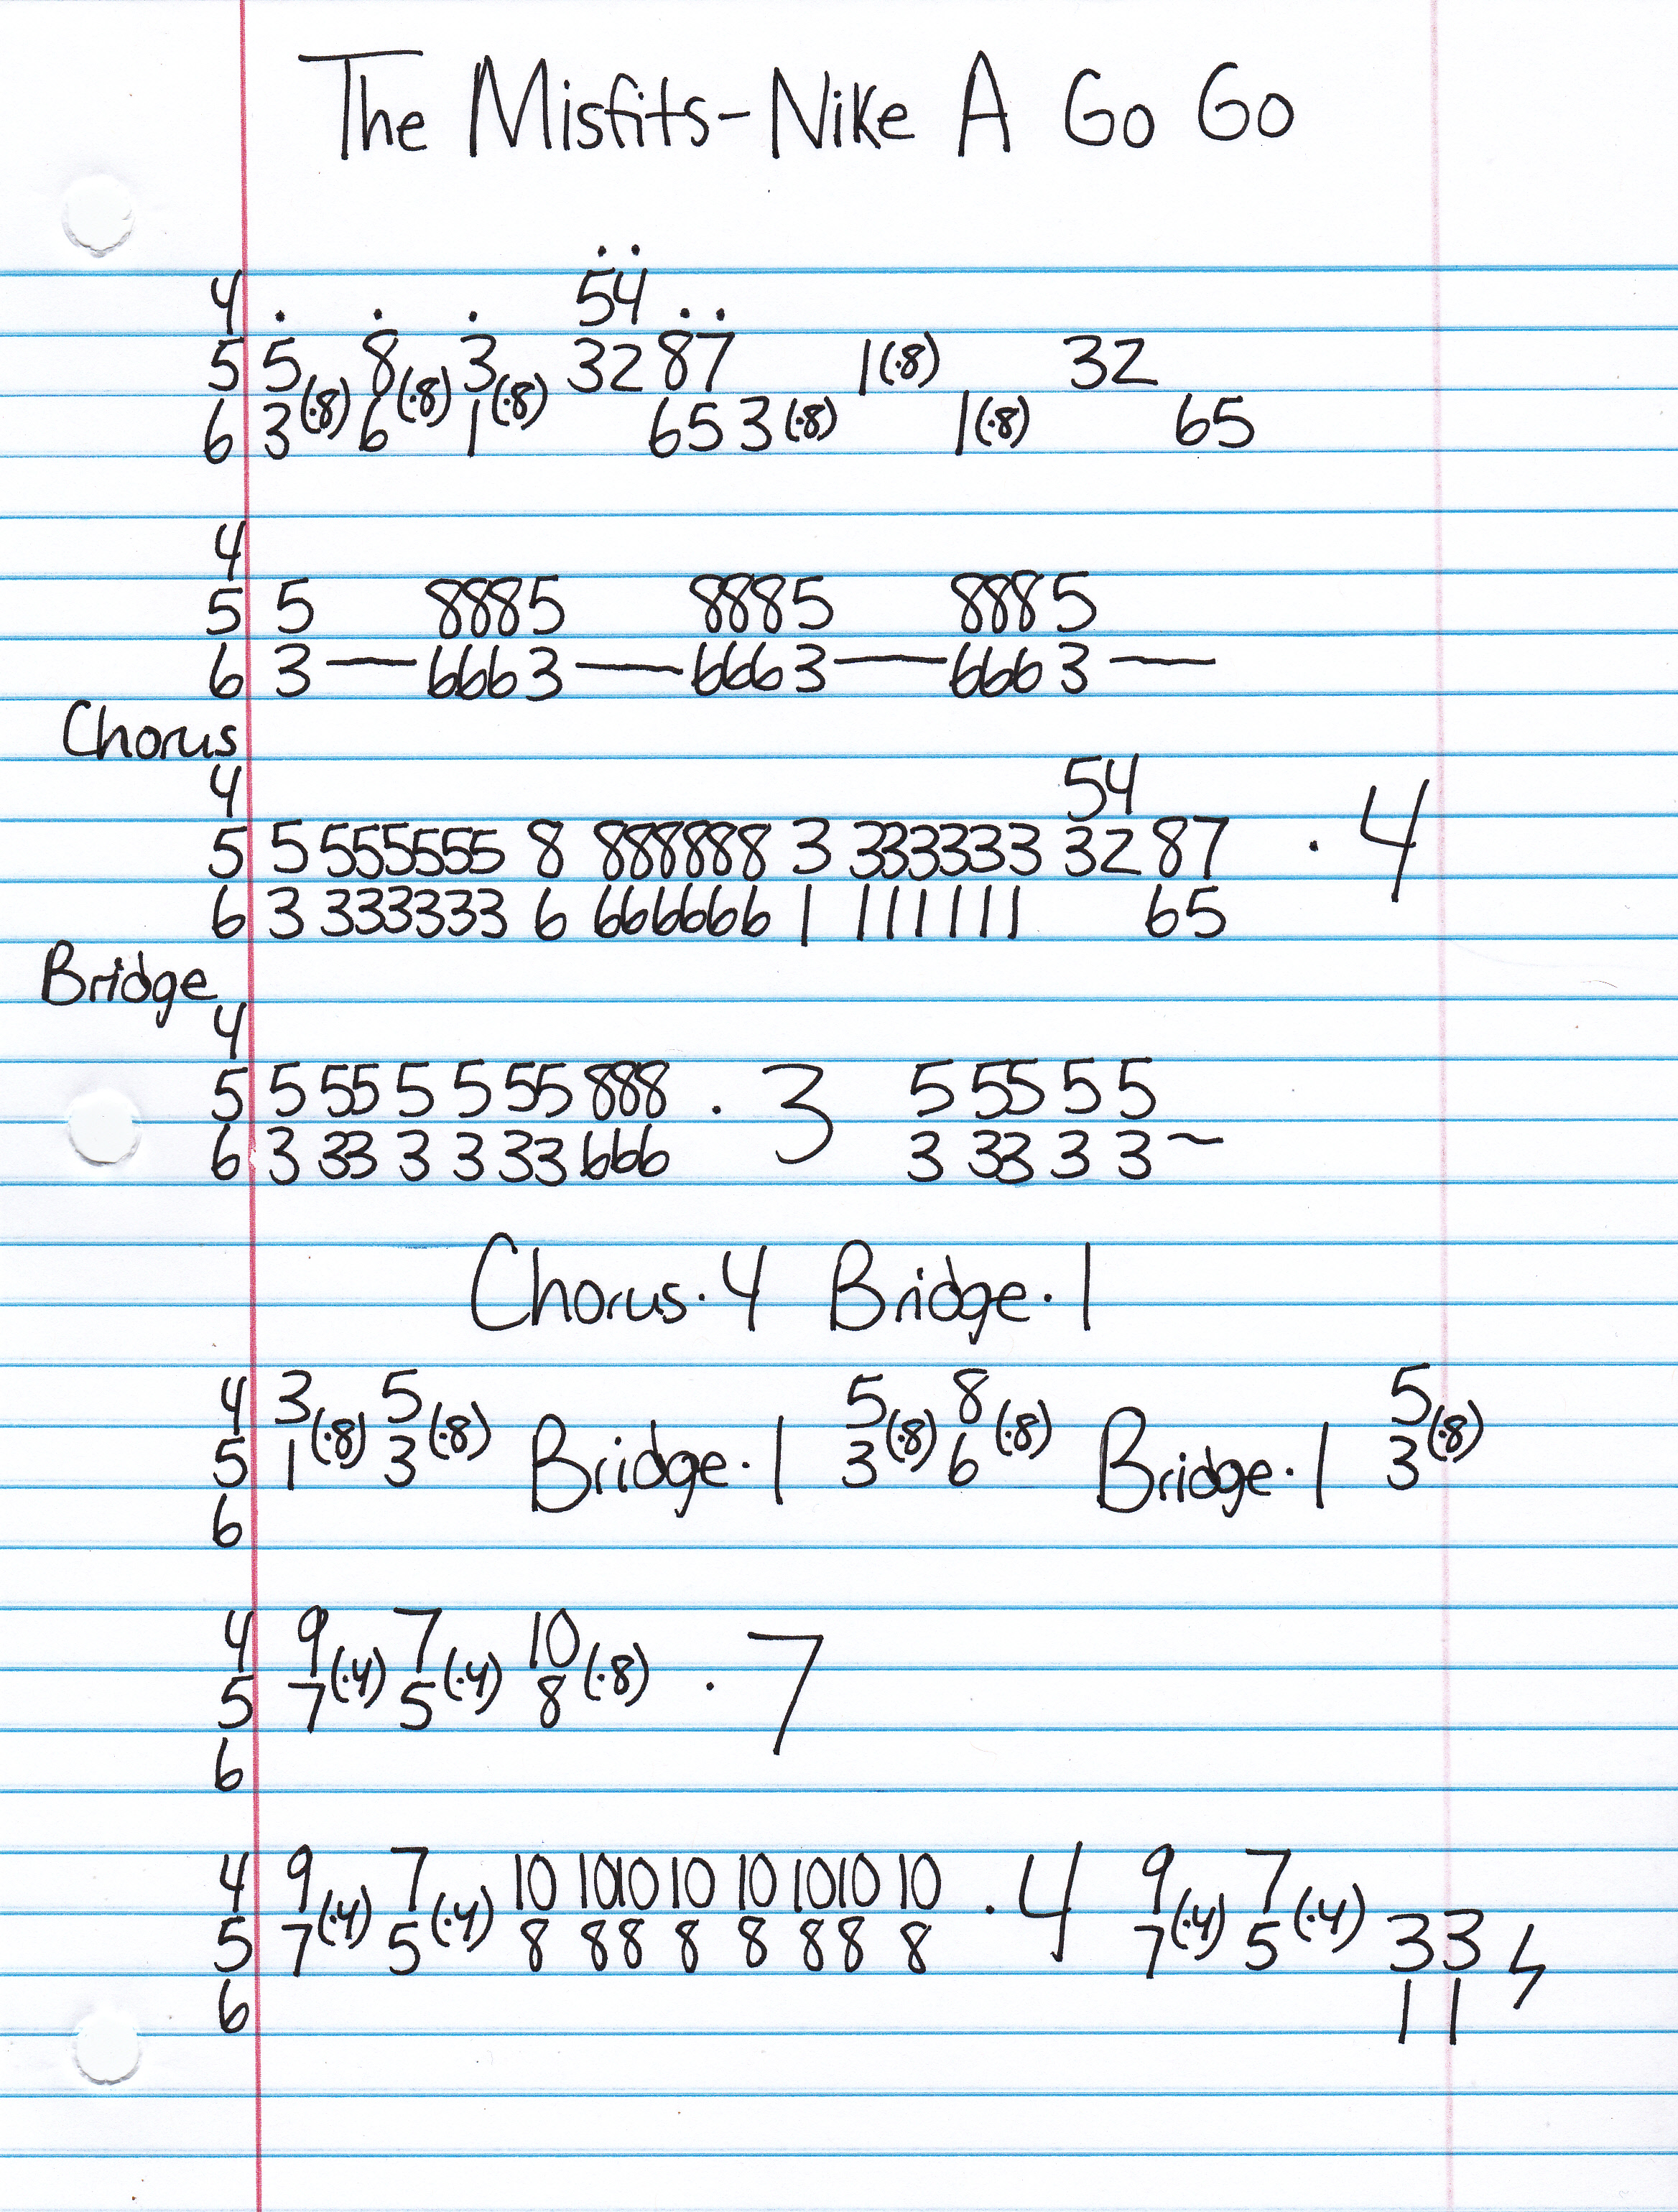 The Misfits-Nike A Go Go
. .
4 . . . 54 . .
5 5 8 3 32 87 1(·8) 32
6 3(·8) 6(·8) 1(·8) 65 3(·8) 1(·8) 65
4
5 5 8885 8885 8885
6 3 — 6663 — 6663 — 6663 —
Chorus
4 54
5 5 555555 8 888888 3 333333 32 87 · 4
6 3 333333 6 666666 1 111111 65
Bridge
4
5 5 55 5 5 55 888 · 3 5 55 5 5
6 3 33 3 3 33 666 3 33 3 3 ~
Chorus·4 Bridge·1
4 3 5 5 8 5
5 1(·8) 3(·8) Bridge·1 3(·8) 6(·8) Bridge·1 3(·8)
6
4 9 7 10
5 7(·4) 5(·4) 8(·8) · 7
6
4 9 7 10 1010 10 10 1010 10 · 4 9 7
5 7(·4) 5(·4) 8 88 8 8 88 8 7(·4) 5(·4) 33
6 11